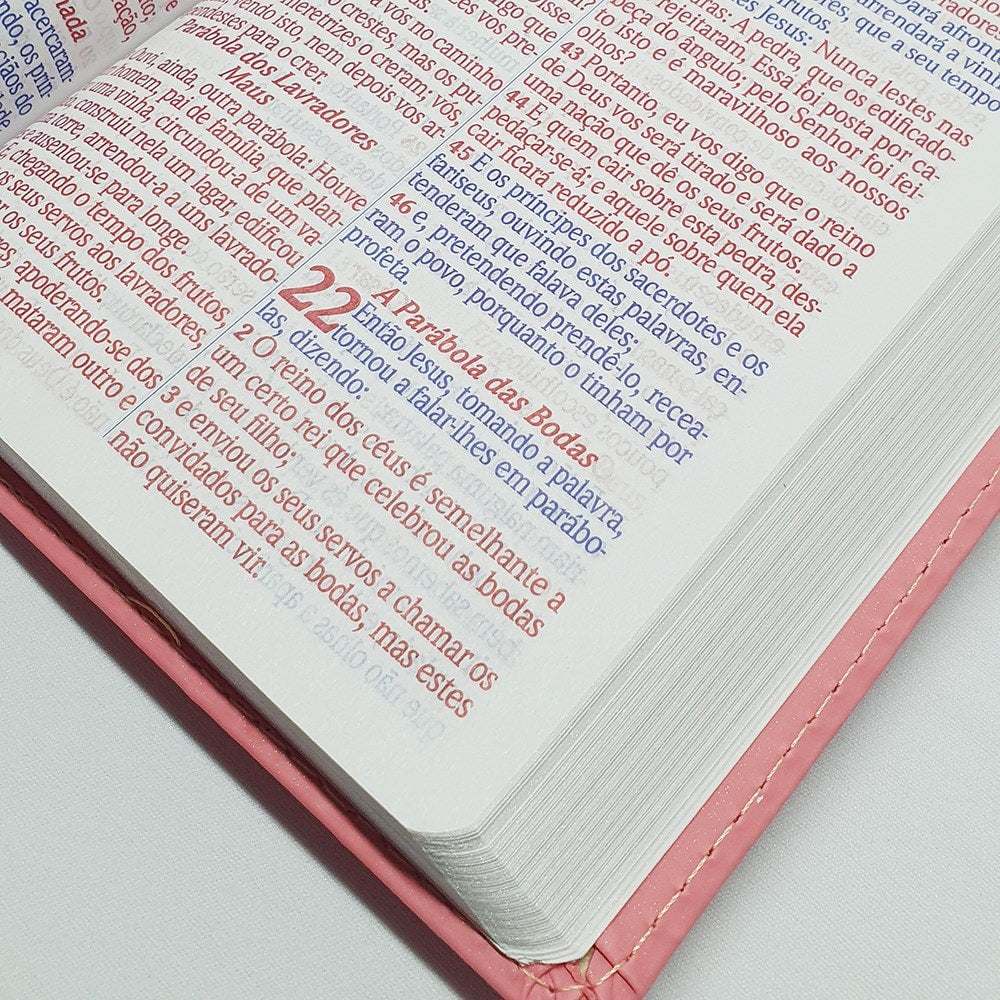 acercaram
ndo, os prin-
nada
vos digo que
meretrizes o creram; vós,
vendo isto, nem depois vos ar-
rependestes para o crer.
Parábola dos Lavradores
Maus
Ouvi, ainda, outra parábola: Houve
um homem, pai de família, que plan-
uma vinha, circundou-a de um va-
construiu nela um lagar, edificou
torre, arrendou-a a uns lavrado-
ausentou-se para longe.
E, chegando o tempo dos frutos,
os seus servos aos lavradores,
os seus frutos.
apoderando-se dos
mataram outro e
Dará afrontosa
arrendará a vinha
frutos
que a seu tempo
Jesus: Nunca lestes nas
A pedra, que os edificado-
rejeitaram, Essa foi posta por ca-
beça do ângulo; pelo Senhor foi fei-
to isto e é maravilhoso aos nossos
olhos?
43 Portanto, eu vos digo que o reino
de Deus vos será tirado e será dado a
uma nação que dê os seus frutos.
44 E, quem cair sobre esta pedra, des-
pedaçar-se-á; e aquele sobre quem ela
cair ficará reduzido a pó.
45 E os príncipes dos sacerdotes e os
fariseus, ouvindo estas palavras, en-
tenderam que falava deles;
46 e, pretendendo prendê-lo, recea-
ram o povo, porquanto o tinham por
profeta.
A Parábola das Bodas
22 Então Jesus, tomando a palavra,
tornou a falar-lhes em parábo-
las, dizendo:
2 O reino dos céus é semelhante a
um certo rei que celebrou as bodas
de seu filho;
3 e enviou os seus servos a chamar os
convidados para as bodas, mas estes
não quiseram vir.